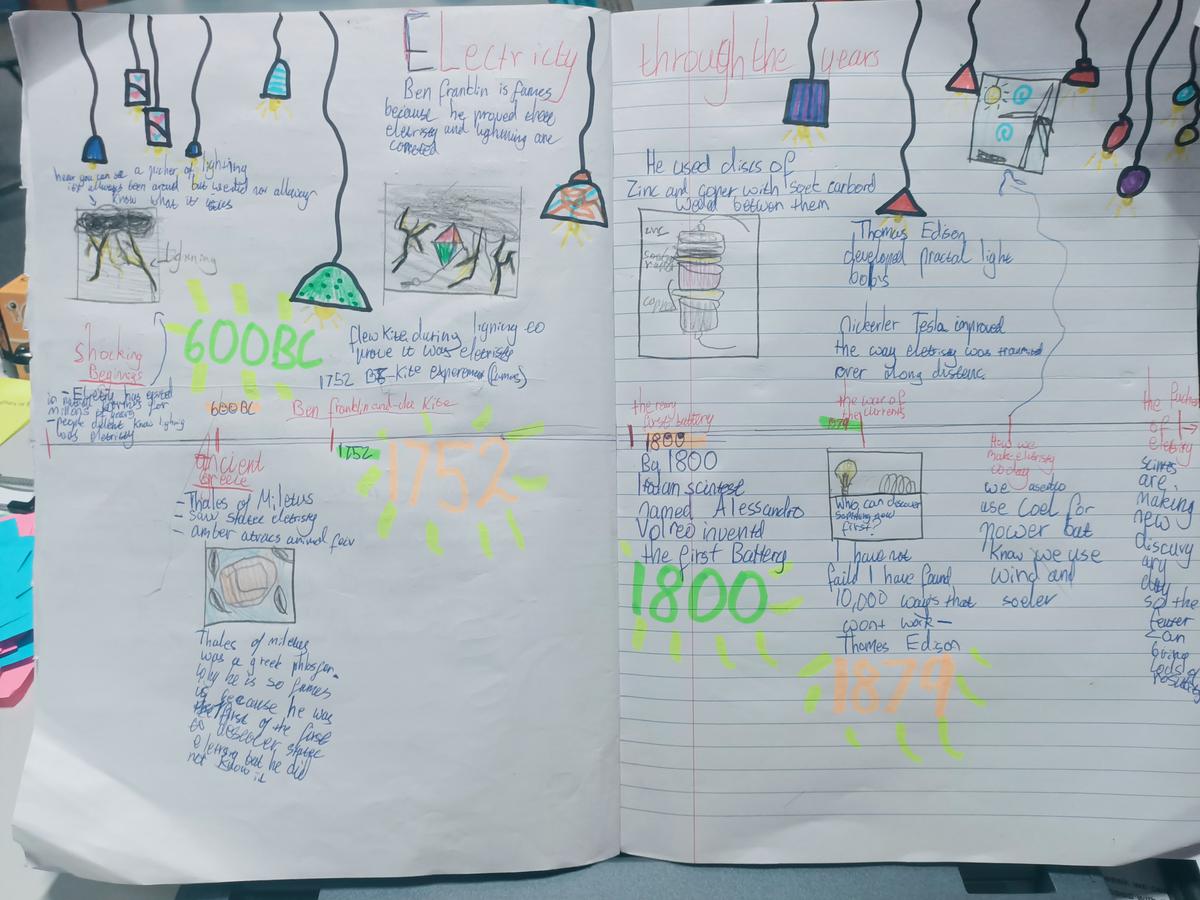 ELectricty through the years
Ben franklin is fames
because he proved there
eletristy and lightning are
conected
hear you can see a picher of lighning
its allways been around but we did not allway
know what it was
lighning
600BC
Shocking
Beginigs
- Eletristy has exsted
millons of years
- people did'ent know lighning
was eletricity
600BC
flew kite during ligning to
prove it was eletristy
1752 BF-Kite experement (fames)
Ben franklin and the Kite
1752
1752
Ancient
Greece
- Thales of Miletus
- saw static eletristy
- amber atracs animal fur
Thales of miletus
was a greet
why he is so fames
is because he was
the first of the first
to discoler static
but he did
not know it
He used discs of
Zinc and coper with soet carbord
between them
zinc
copper
the very
first battery
1800
By 1800
Italan scintest
named Alessandro
Volreo inventd
the first Battery
1800
Thomas Edison
developed practal light
bobs
nickerler Tesla improved
the way eletristy was
over along distenc.
the war of
the currents
1879
Who can discover
something new
first?
I have not
faild I have found
10,000 ways that
wont work-
Thomes Edison
1879
How we
make eletristy
today
we useto
use Coel for
power but
know we use
wind and
soeler
the fucher
of
eletristy
scintes
are
making
new
discuvy
ary
day
so the
feuter
can
bring
lods of